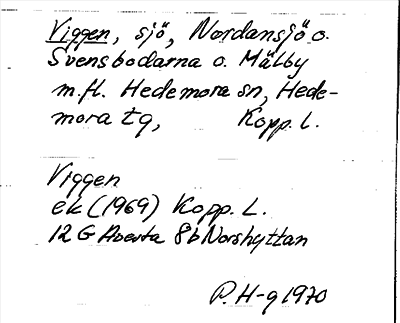 Viggen, sjö, Nordansjö o.
Svensbodarna o. Mälby
m.fl. Hedemora sn, Hede-
mora tg, Kopp. L.
Viggen
ek (1969) Kopp. L.
12 G Avesta 8b Norshyttan
P. H-g 1970